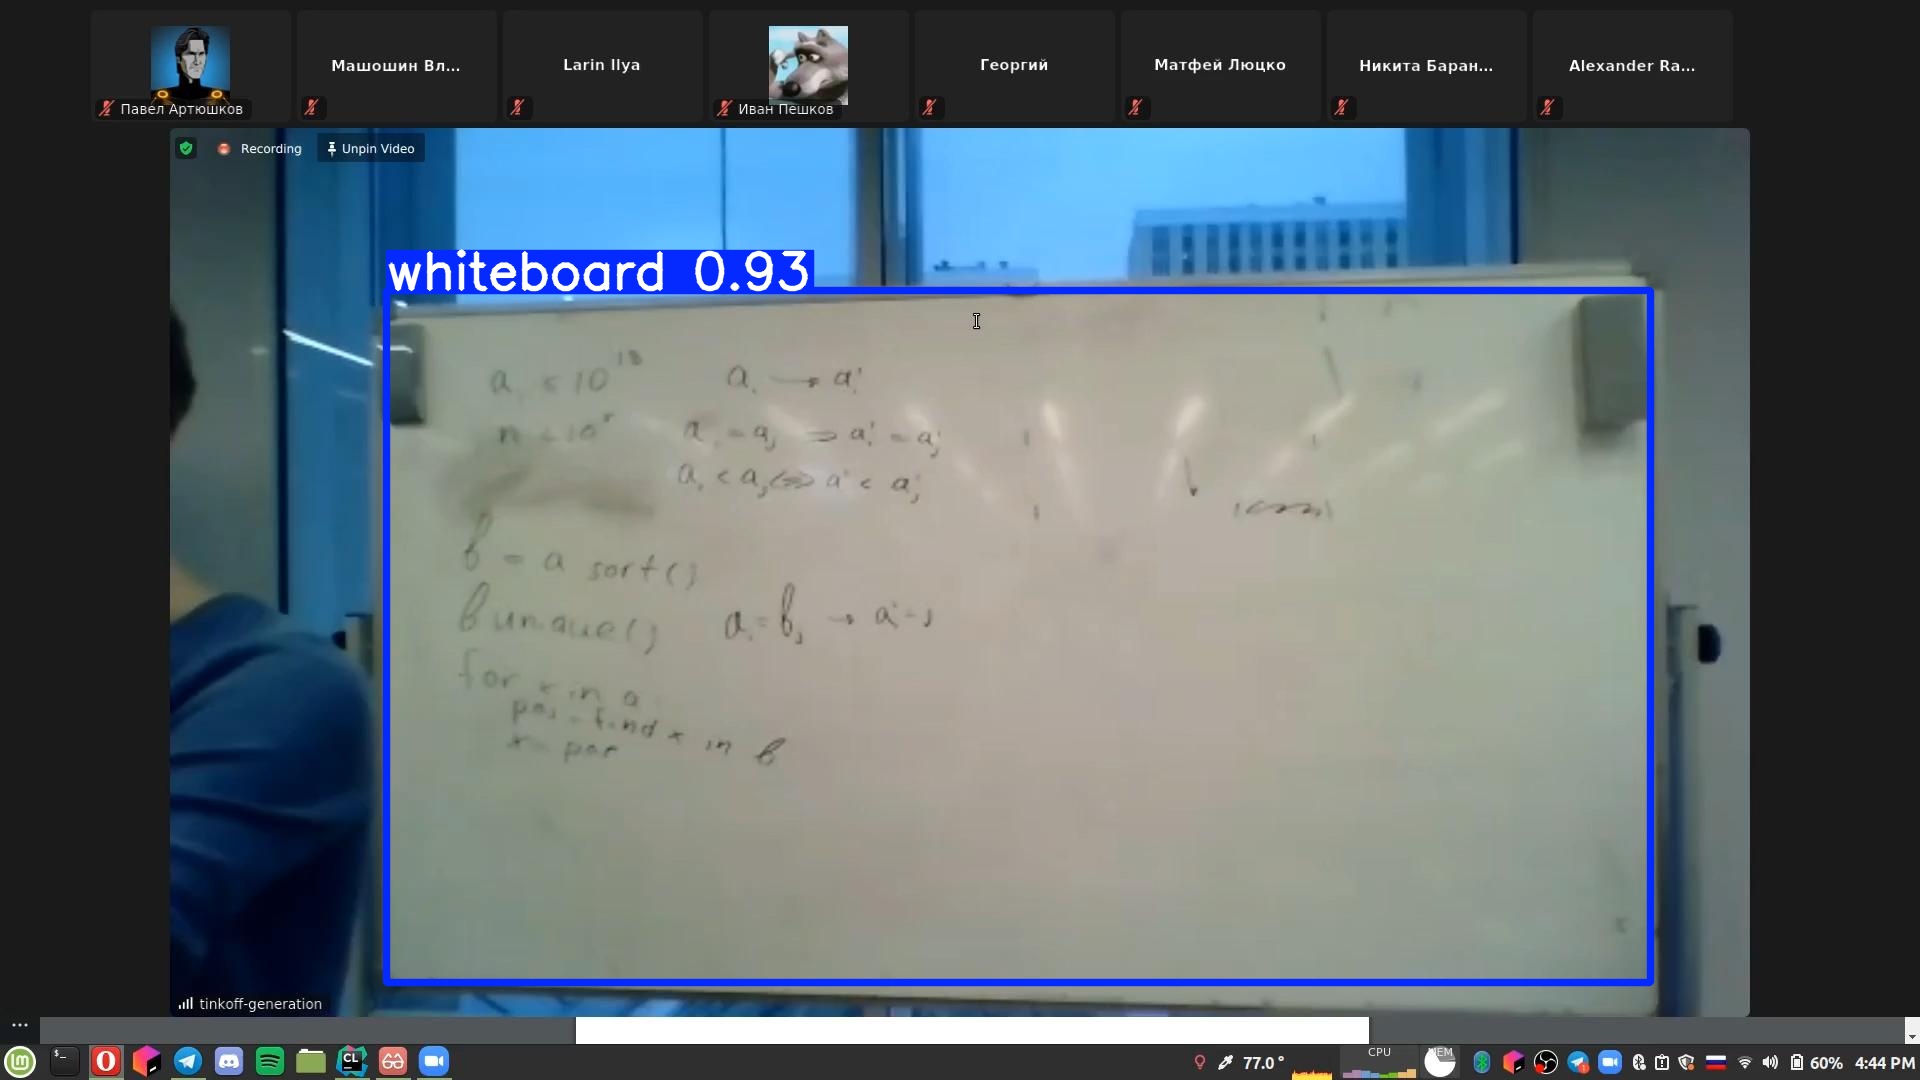 Павел Артюшков
Машошин Вл...
Larin Ilya
Иван Пешков
Георгий
Матфей Люцко
Никита Баран...
Alexander Ra...
Recording
Unpin Video
whiteboard 0.93
a_i < 10^18
a_i → a_i'
n < 10^5
a_i = a_j ⇒ a_i' = a_j'
a_i < a_j ⇔ a_i' < a_j'
b = a sort()
b unique()
a_i = b_j → a_i' = j
for x in a:
pos = find x in b
x = pos
tinkoff-generation
CL
77.0°
CPU
MEM
60%
4:44 PM